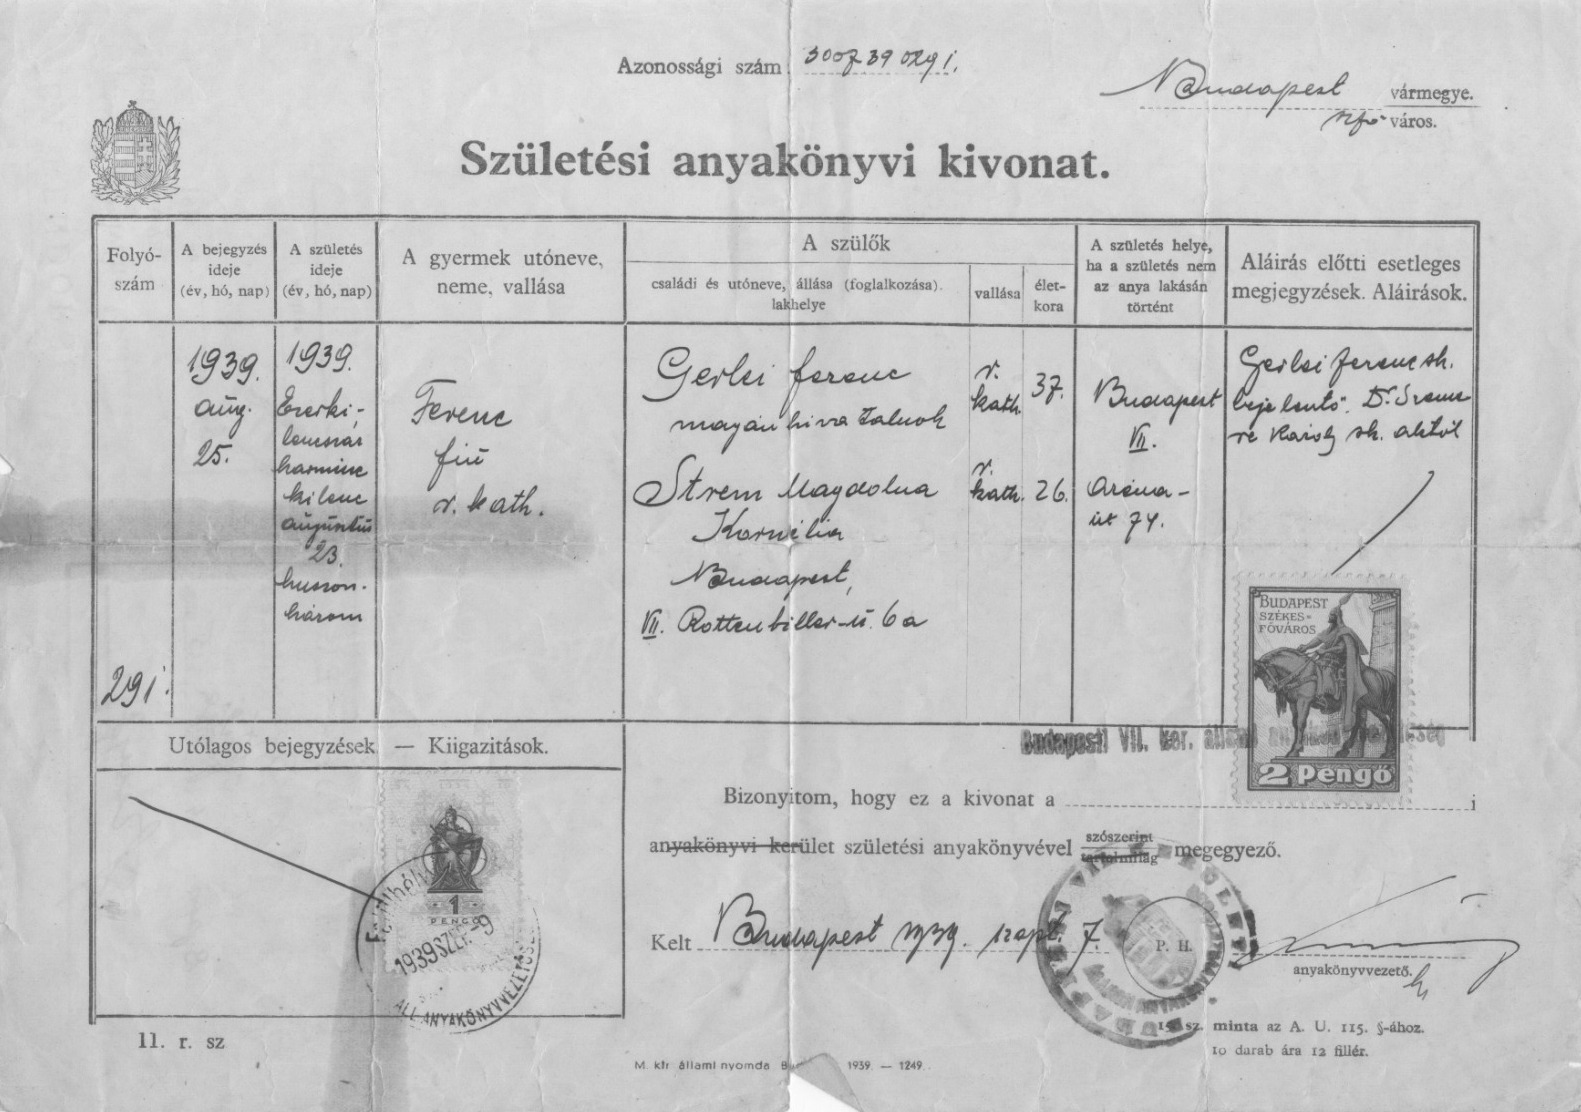 Azonossági szám
Budapest vármegye.
szfő város.
Születési anyakönyvi kivonat.
Folyó-
szám
A bejegyzés
ideje
(év, hó, nap)
A születés
ideje
(év, hó, nap)
A gyermek utóneve,
neme, vallása
A szülők
családi és utóneve, állása (foglalkozása).
lakhelye
vallása
élet-
kora
A születés helye,
ha a születés nem
az anya lakásán
történt
Aláírás előtti esetleges
megjegyzések. Aláírások.
291.
1939.
aug.
25.
1939.
Ezerki-
lencszáz
harminc
kilenc
augusztus
23.
huszon-
három
Ferenc
fiú
r. kath.
Gerlei Ferenc
magánhivatalnok
r.
kath.
37.
Strem Magdolna
Kornélia
r.
kath.
26.
Budapest,
VII. Rottenbiller-u. 6a
Budapest
VII.
Aréna-
út 74.
Gerlei Ferenc sk.
bejelentő. Dr. Szeme-
re Károly sk. aktól
BUDAPEST
SZÉKES-
FŐVÁROS
2 Pengő
Utólagos bejegyzések. — Kiigazitások.
1
PENGŐ
1939 SZEP. -9
ÁLL. ANYAKÖNYVVEZETŐSÉG
Budapesti VII. ker. állami
Bizonyitom, hogy ez a kivonat a i
anyakönyvi kerület születési anyakönyvével szószerint megegyező.
tartalmilag
Kelt Budapest 1939. szept. 7.
P. H.
anyakönyvvezető.
15. sz. minta az A. U. 115. §-ához.
10 darab ára 12 fillér.
11. r. sz
M. kir. állami nyomda 1939. — 1249.